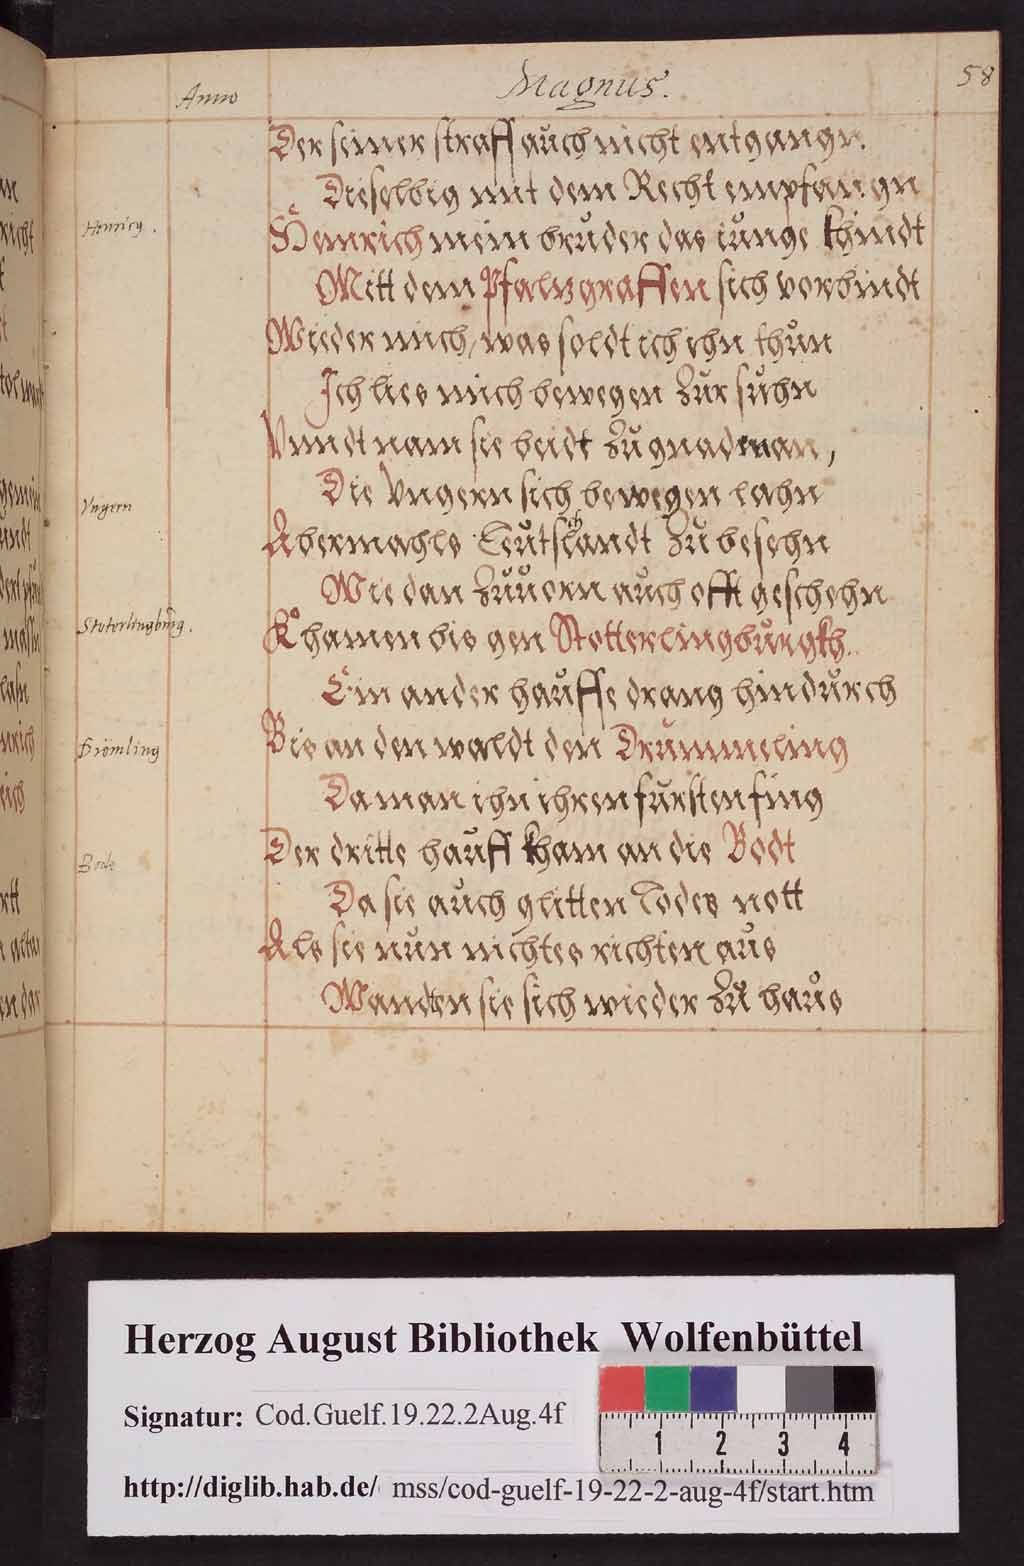 Anno
Magnus.
58
Der seiner straff auch nicht entgangn.
Dieselbig mit dem Recht empfangn
Henricg.
Heinrich mein bruder das iunge khindt
Mitt dem Pfaltzgraffen sich vorbindt
Wieder mich, was soldt ich ihn thun
Ich lies mich bewegen Zur suhn
Vnndt nam sie beidt Zu gnadn an,
Die Vngern sich bewegen lahn
Vngern
Abermahls Teutschlandt Zu besehn
Wie dan Zuuorn auch offt geschehn
Stoterlingburg.
Khamen bis gen Stotterlingburgkh.
Ein ander hauffe drang hindurch
Drömling
Bis an den waldt den Drummeling
Da man ihn ihren fursten fing
Der dritte hauff kham an die Bodt
Bode
Da sie auch glitten Todes nott
Als sie nun nichtes richten aus
Wandten sie sich wieder Zu haus
Herzog August Bibliothek Wolfenbüttel
Signatur: Cod.Guelf.19.22.2Aug.4f
1 2 3 4
http://diglib.hab.de/ mss/cod-guelf-19-22-2-aug-4f/start.htm